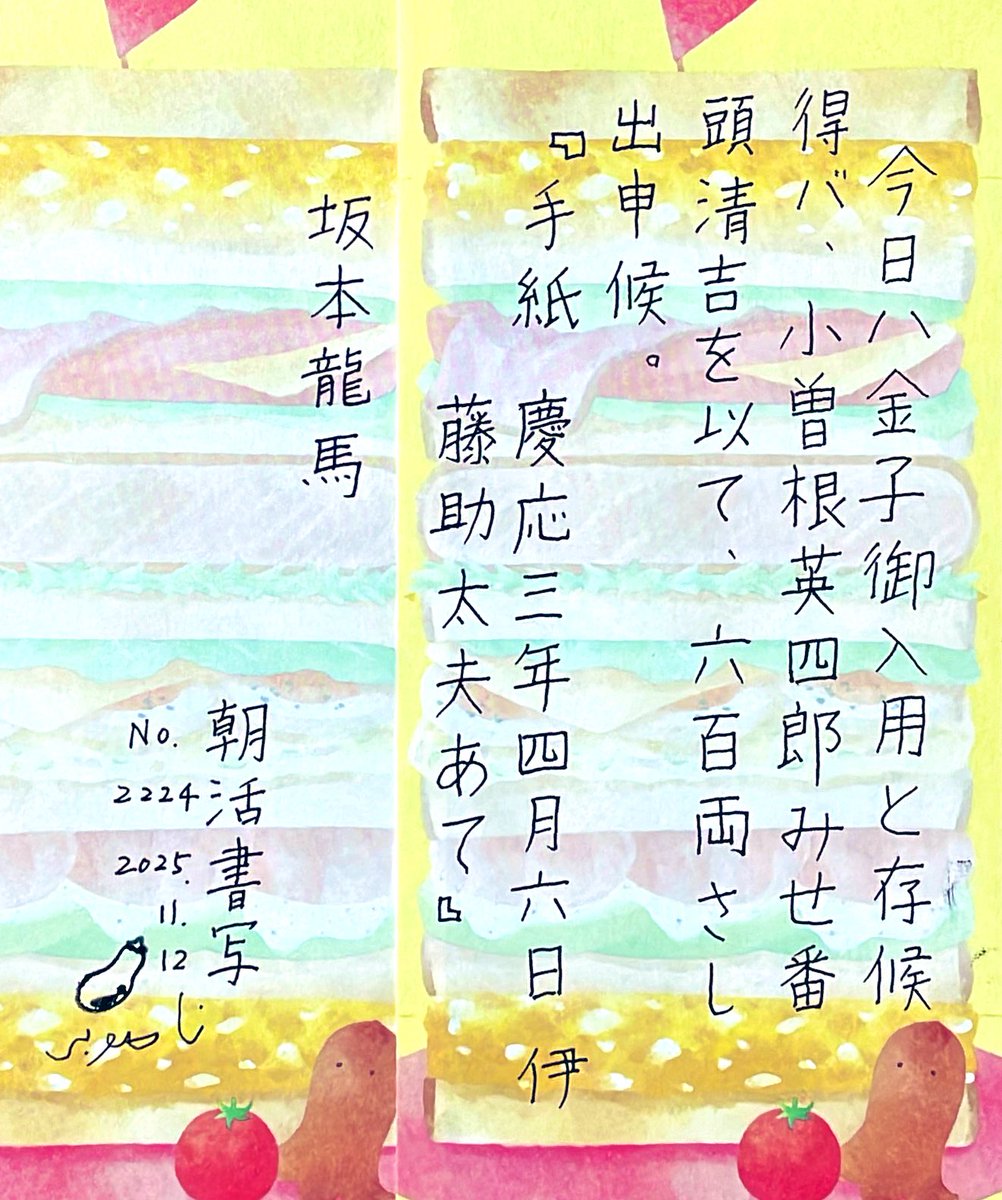 今日ハ金子御入用と存候
得バ、小曽根英四郎みせ番
頭清吉を以て、六百両さし
出申候。
『手紙 慶応三年四月六日 伊
藤助太夫あて』
坂本龍馬
朝活書写
No.
2224
2025.
11.
12